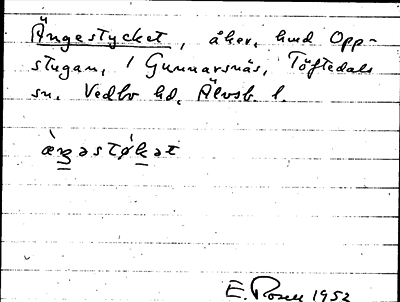 Ängestycket, åker, hmd Opp-
stugan, 1 Gunnarsnäs, Töftedals
sn. Vedbo hd, Älvsb. l.
E. Rosell 1952